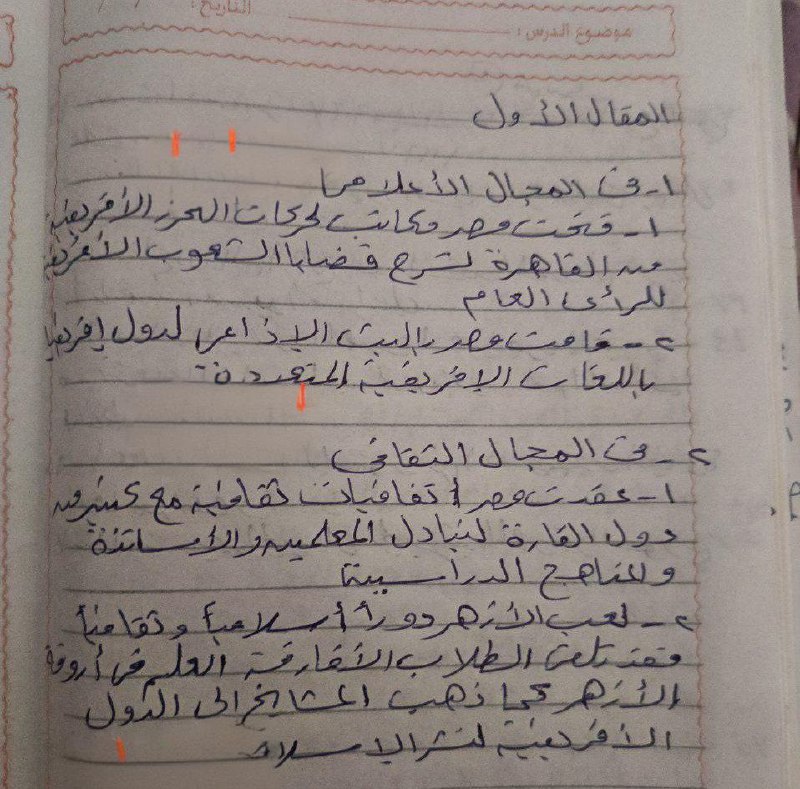 التاريخ: / /
موضوع الدرس:
المقال الأول
١- فى المجال الأعلامى
١- فتحت مصر مكاتب لحركات التحرر الأفريقية
من القاهرة لشرح قضايا الشعوب الأفريقية
للرأى العام
٢- قامت مصر بالبث الإذاعى لدول إفريقيا
باللغات الإفريقية المتعددة
٢- فى المجال الثقافى
١- عقدت مصر أتفاقيات ثقافية مع كثير من
دول القارة لتبادل المعلمين والأساتذة
والمناهج الدراسية
٢- لعب الأزهر دوراً أسلامياً وثقافياً
فقد تلقى الطلاب الأفارقة العلم فى أروقة
الأزهر كما ذهب المشايخ الى الدول
الأفريقية لنشر الإسلام